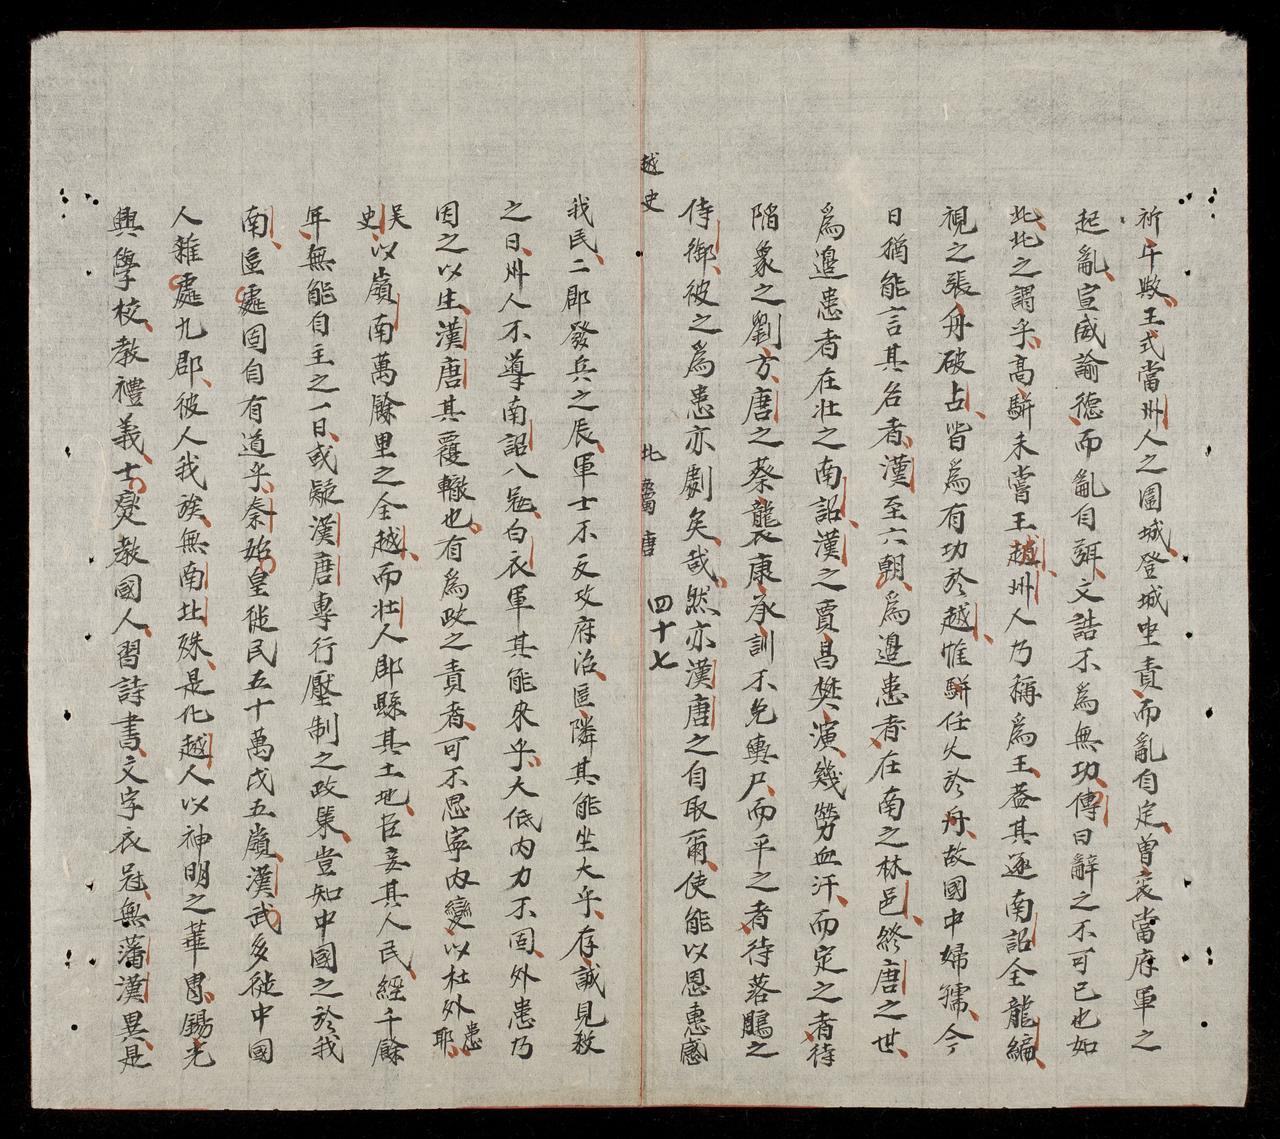 祈年歟王式當州人之圍城登城坐責而亂自定曾袞當府軍之
起亂宣威諭德而亂自弭文誥不為無功傳曰辭之不可已也如
此此之謂乎高駢未嘗王越州人乃稱爲王葢其逐南詔全龍編
視之張舟破占皆為有功於越惟駢任久於舟故國中婦孺今
日猶能言其名者漢至六朝爲邉患者在南之林邑終唐之世
爲邉患者在壮之南詔漢之賈昌樊演幾勞血汗而定之者待
陷象之劉方唐之蔡襲衣康承訓不免輿尸而平之者待落鵰之
侍御彼之爲患亦劇矣哉然亦漢唐之自取爾使能以恩惠感
越史 北屬唐 四十七
我民二郡發兵之辰軍士不反攻府治區隣其能坐大乎存誠見殺
之日州人不導南詔入冦白衣軍其能來乎大低内力不固外患乃
因之以生漢唐其覆轍也有爲政之責者可不思寧内變以杜外患耶
吴史以嶺南萬餘里之全越而壮人郡縣其土地臣妾其人民經千餘
年無能自主之一日或疑漢唐專行壓制之政策豈知中國之於我
南區處固自有道乎秦始皇徙民五十萬戍五嶺漢武多徙中國
人雜處九郡彼人我族無南北殊是化越人以神明之華胄錫光
興學校教禮義士燮教國人習詩書文字衣冠無藩漢異是